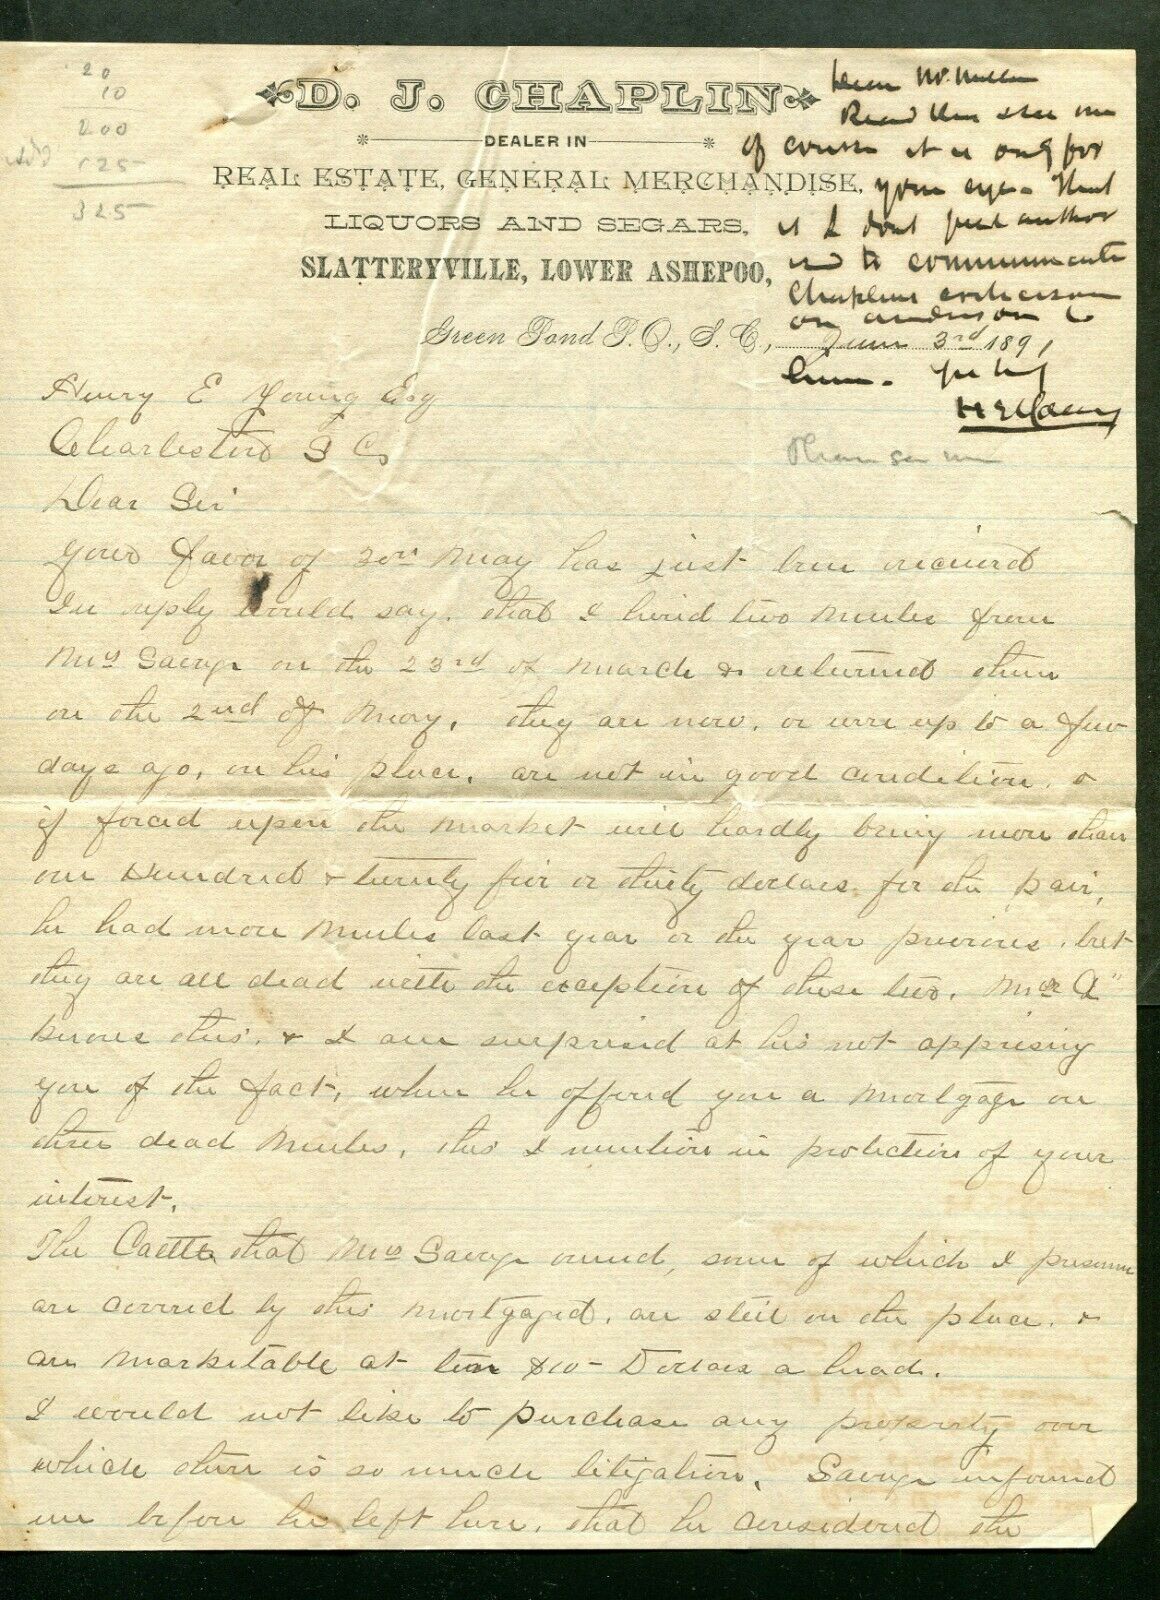 20
10
200
125
325
D. J. CHAPLIN
DEALER IN
REAL ESTATE, GENERAL MERCHANDISE,
LIQUORS AND SEGARS,
SLATTERYVILLE, LOWER ASHEPOO,
Green Pond P.O., S. C., June 3rd 1891
Dear Mr.
Read this
of course it is only for
your eye. That
is I dont feel author
ised to communicate
Chaplins criticism
on Anderson to
him. Yrs truly
H E Young
Please
Henry E Young Esq
Charleston S C,
Dear Sir
Your favor of 30th May has just been received
In reply would say, that I hired two mules from
Mrs Savage on the 23rd of March & returned them
on the 2nd of May, they are now, or were up to a few
days ago, on his place, are not in good condition, &
if forced upon the market will hardly bring more than
one Hundred & twenty five or thirty dollars for the pair,
he had more mules last year or the year previous, but
they are all dead with the exception of these two, Mr A"
knows this, & I am surprised at his not apprising
you of the fact, when he offered you a mortgage on
three dead mules, this I mention in protection of your
interest.
The Cattle that Mrs Savage owned, some of which I presume
are covered by this mortgaged, are still on the place, &
are marketable at ten $10- Dollars a head.
I would not like to purchase any property over
which there is so much litigation, Savage informed
me before he left here, that he considered the